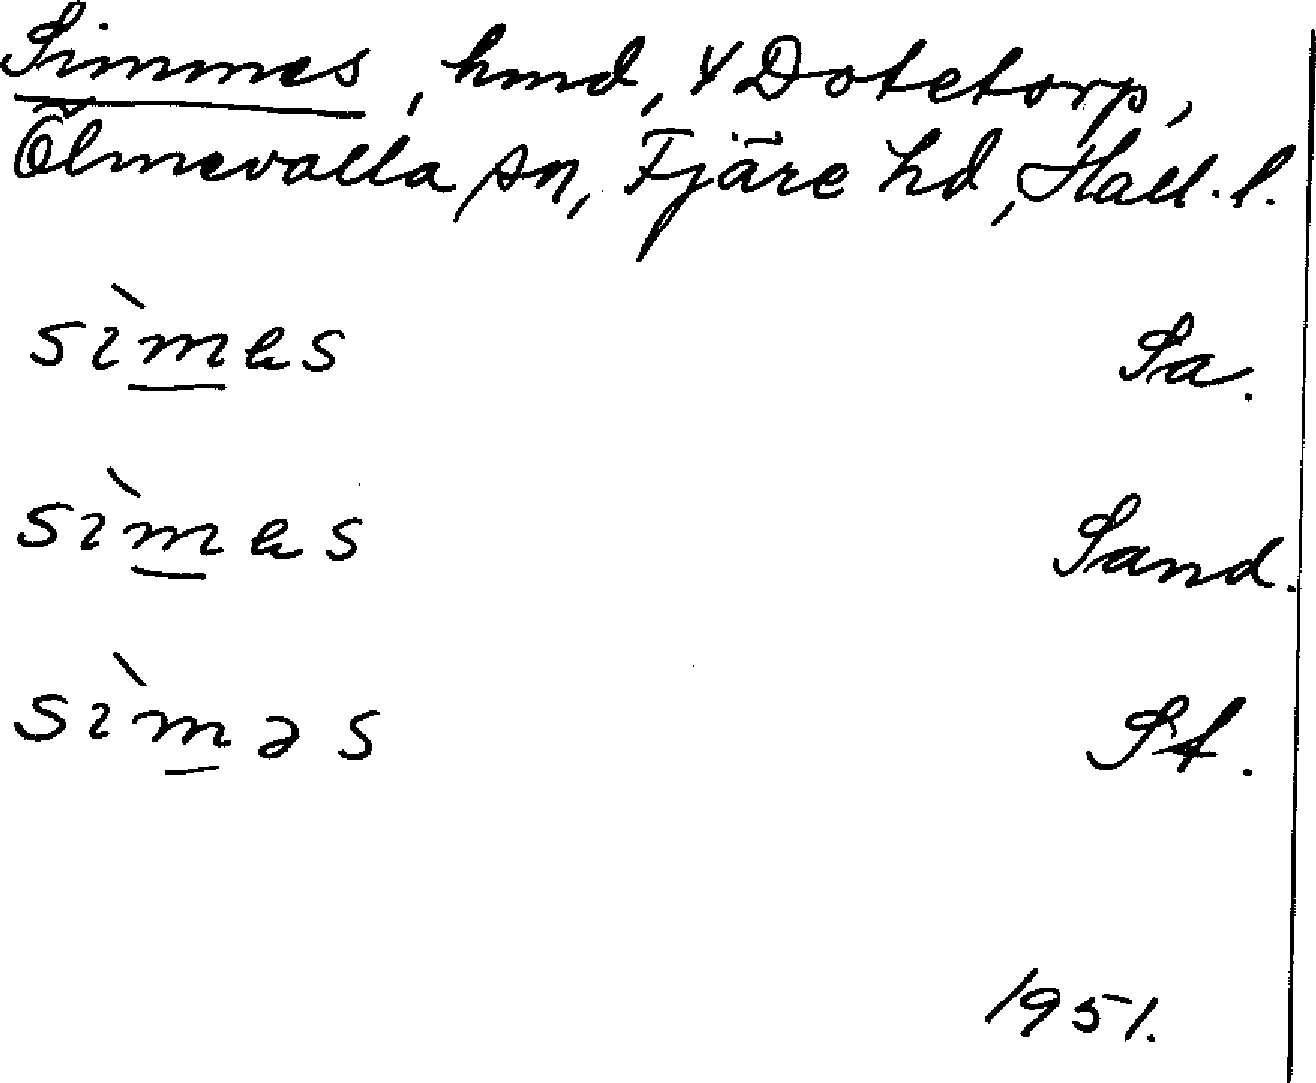 Simmes, hmd, V Dotetorp,
Ölmevalla sn, Fjäre hd, Hall. l.
sìmes Sa.
sìmes Sand.
sìməs St.
1951.